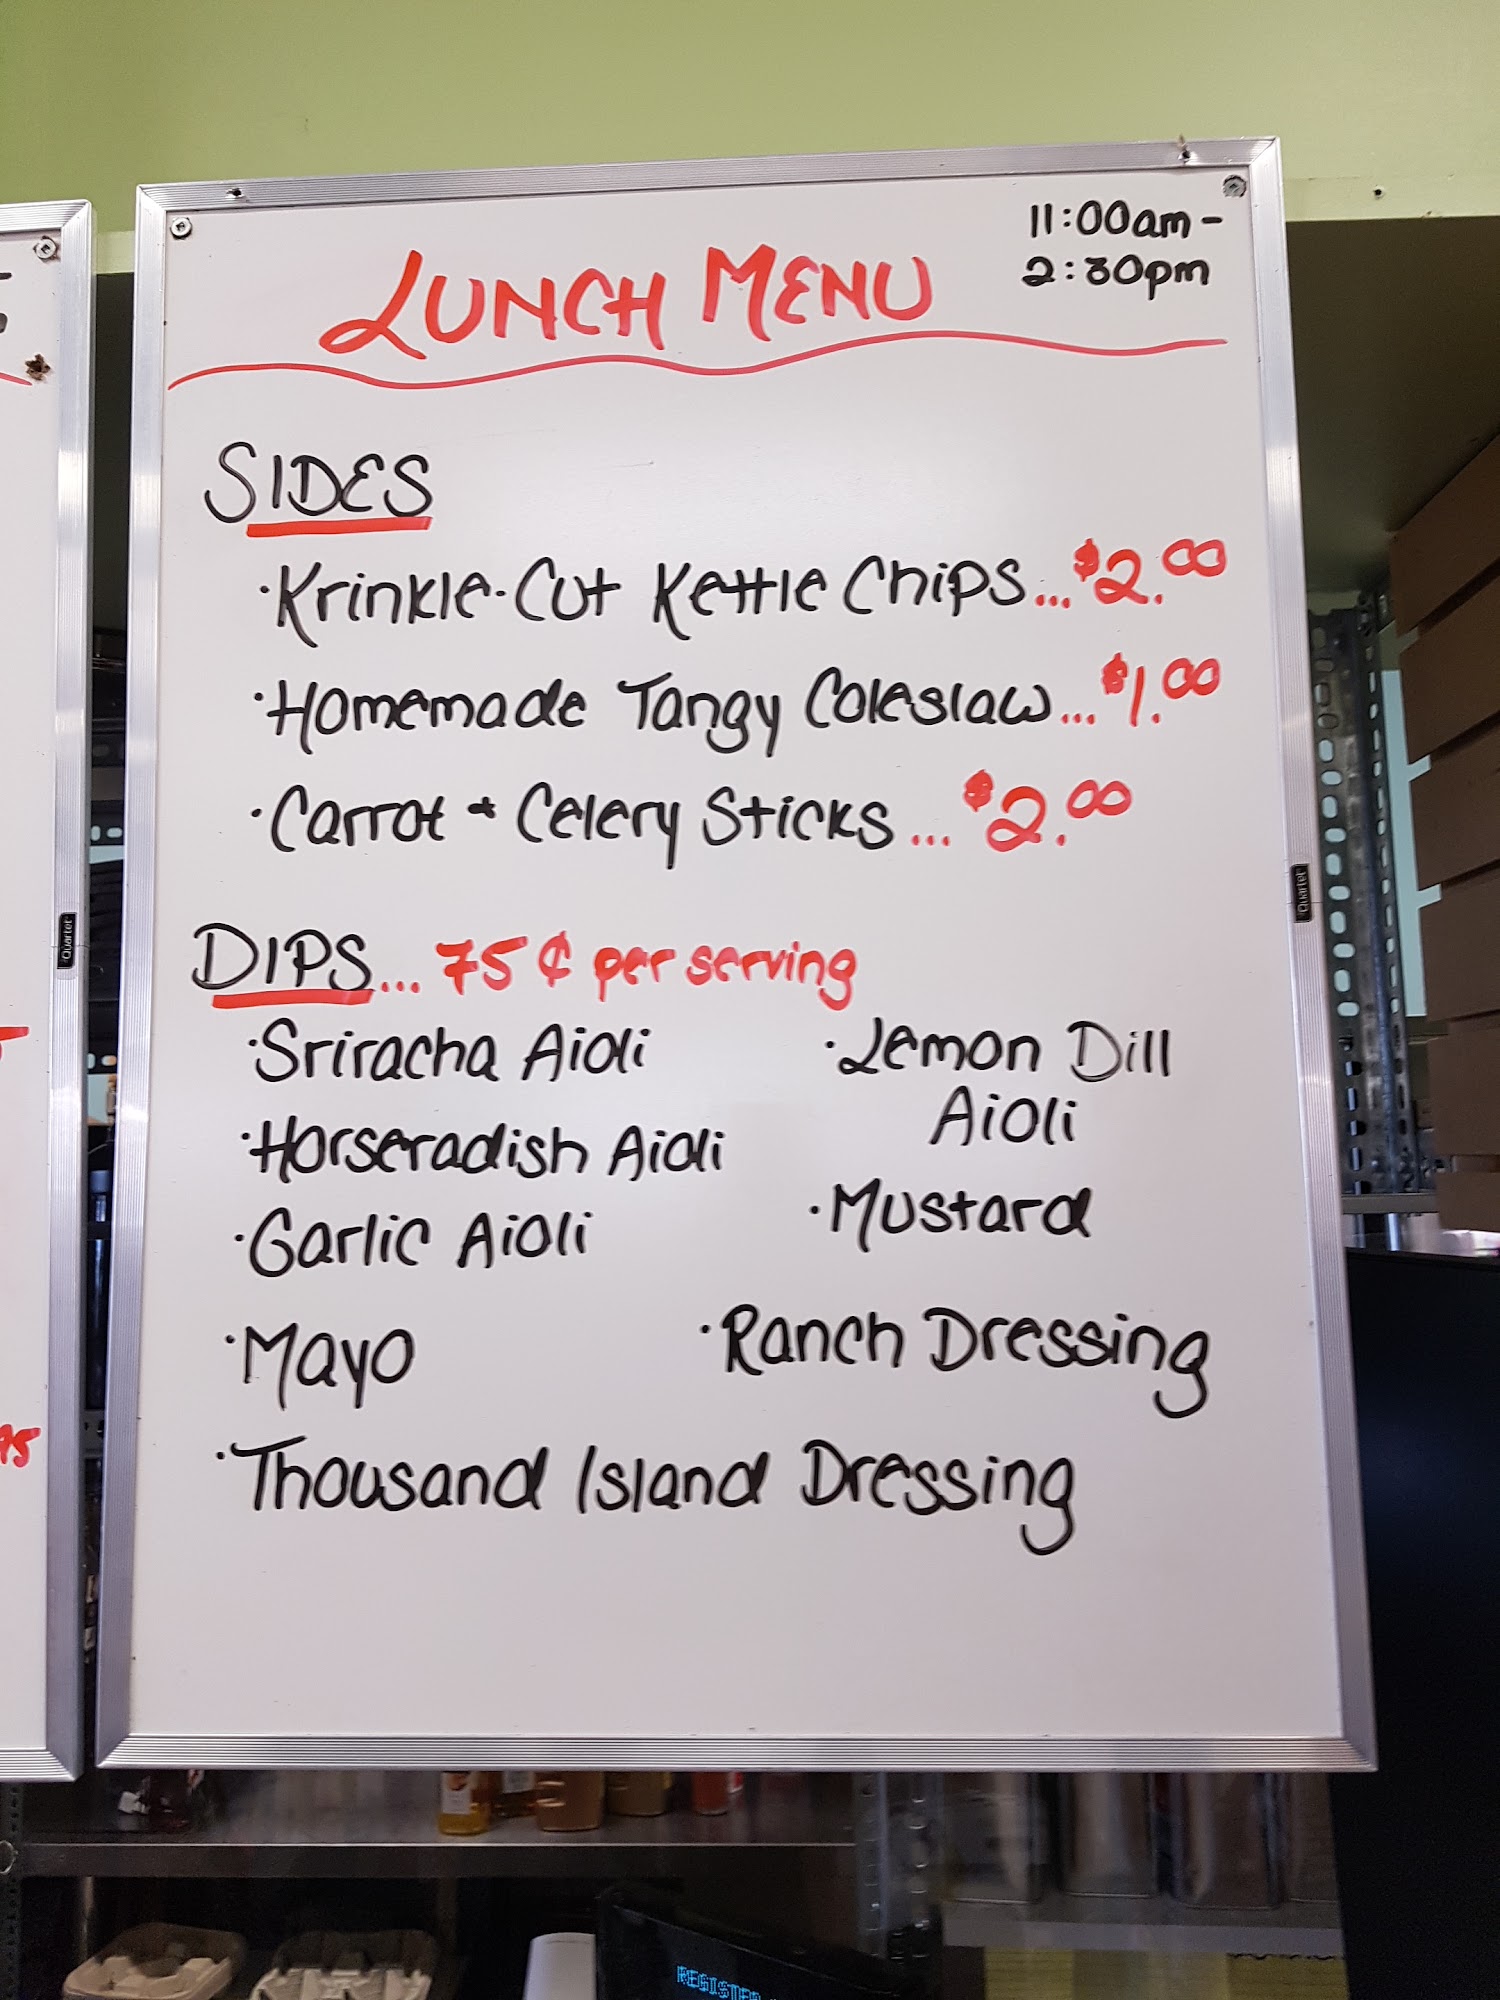 11:00am -
2:30pm
LUNCH MENU
SIDES
·Krinkle-Cut Kettle Chips...$2.00
·Homemade Tangy Coleslaw...$1.00
·Carrot + Celery Sticks...$2.00
DIPS...75¢ per serving
·Sriracha Aioli
·Lemon Dill
Aioli
·Horseradish Aioli
·Garlic Aioli
·Mustard
·Mayo
·Ranch Dressing
·Thousand Island Dressing
Quartet
Quartet
REGISTER